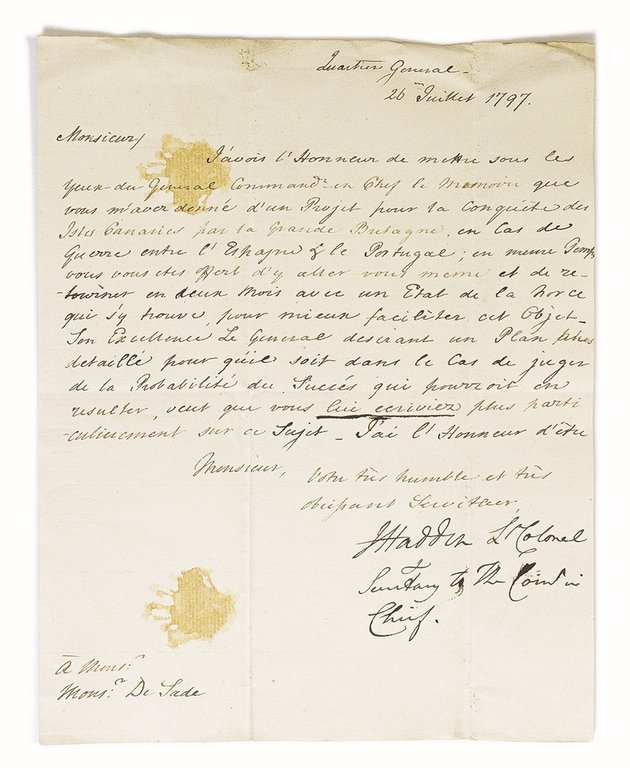 Quartier General_
26 Juillet 1797.
Monsieur/
J'avois l'Honneur de mettre sous les
yeux du General Commandt. en Chef le Memoire que
vous m'avez donné d'un Projet pour la Conquête des
Isles Canaries par la Grande Bretagne, en Cas de
Guerre entre l'Espagne & le Portugal; en meme Temps
vous vous etes offert d'y aller vous meme et de re-
-tourner en deux Mois avec un Etat de la Force
qui s'y trouve pour mieux faciliter cet Objet_
Son Excellence Le General desirant un Plan
detaillé pour qu'il soit dans le Cas de juger
de la Probabilité du Succés qui pourroit en
resulter, veut que vous lui ecriviez plus parti
-culierement sur ce Sujet_ J'ai l'Honneur d'être
Monsieur,
Votre trés humble et trés
obeissant Serviteur,
JHadden Lt. Colonel
Secretary to The Comdr in
Chief.
à Monsr.
Monsr. De Sade